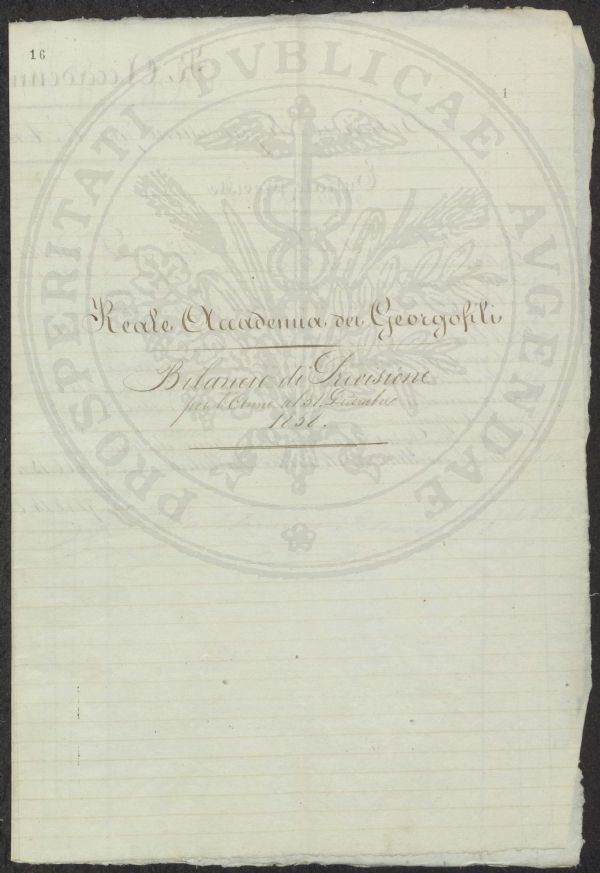 16
1
PROSPERITATI PVBLICAE AVGENDAE
Reale Accademia dei Georgofili
Bilancio di Previsione
per l'Anno al 31. Dicembre
1858.